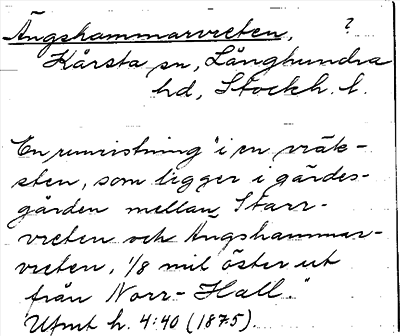 Ängshammarvreten, ?
Kårsta sn, Långhundra
hd, Stockh. l.
En runristning "i en vräk-
sten, som ligger i gärdes-
gården mellan Starr-
vreten och Ängshammar-
vreten, 1/8 mil öster ut
från Norr-Hall."
Ufmt h. 4:40 (1875).